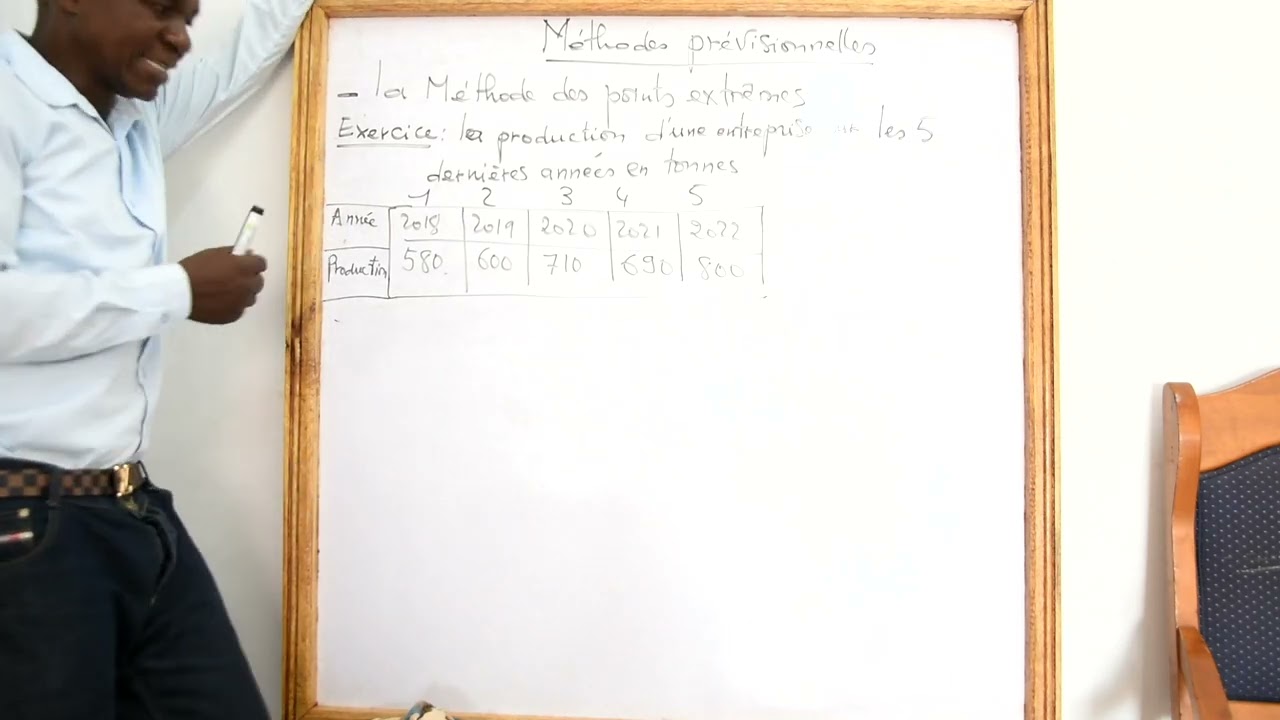 Méthodes prévisionnelles
- la Méthode des points extrêmes
Exercice: la production d'une entreprise les 5
dernières années en tonnes
1 2 3 4 5
Année 2018 2019 2020 2021 2022
Production 580. 600 710 690 800